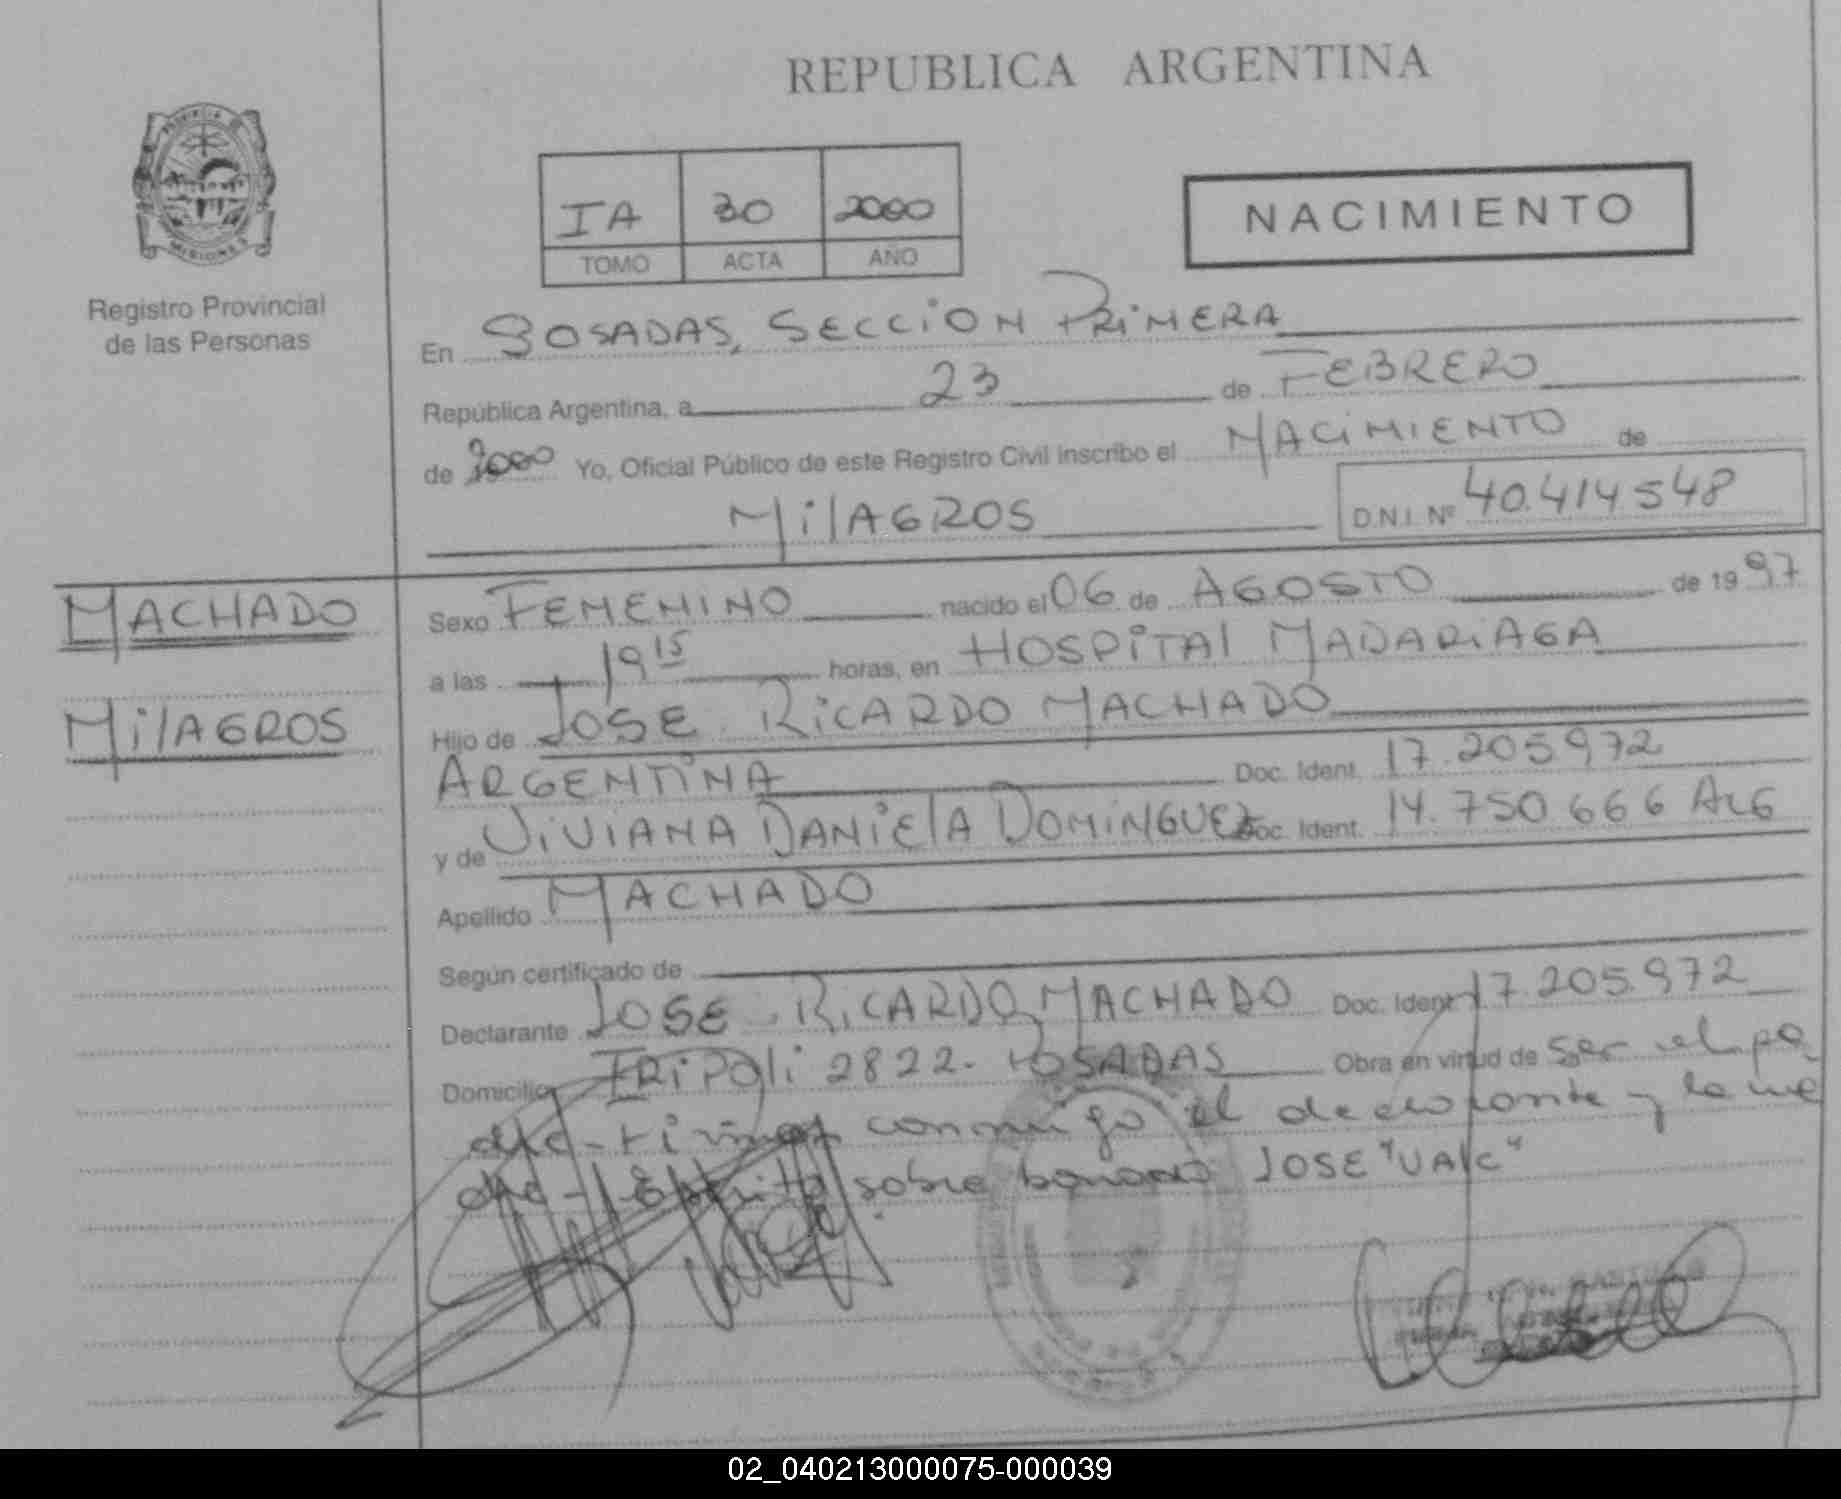 REPUBLICA ARGENTINA
PROVINCIA DE
MISIONES
Registro Provincial
de las Personas
IA 30 2000
TOMO ACTA AÑO
NACIMIENTO
En POSADAS, SECCION PRIMERA
República Argentina, a 23 de FEBRERO
de 2000 Yo, Oficial Público de este Registro Civil inscribo el NACIMIENTO de
MILAGROS D.N.I. Nº 40.414.548
MACHADO
MILAGROS
Sexo FEMENINO nacido el 06 de AGOSTO de 1997
a las 19 15 horas, en HOSPITAL MADARIAGA
Hijo de JOSE RICARDO MACHADO
ARGENTINA Doc. Ident. 17.205.972
y de VIVIANA DANIELA DOMINGUEZ Doc. Ident. 14.750.666 ARG
Apellido MACHADO
Según certificado de
Declarante JOSE RICARDO MACHADO Doc. Ident. 17.205.972
Domicilio TRIPOLI 2822- POSADAS Obra en virtud de ser el pa
dre - firman conmigo el declarante y la ma
dre - Escrito sobre borrado JOSE "VALE"
02_040213000075-000039